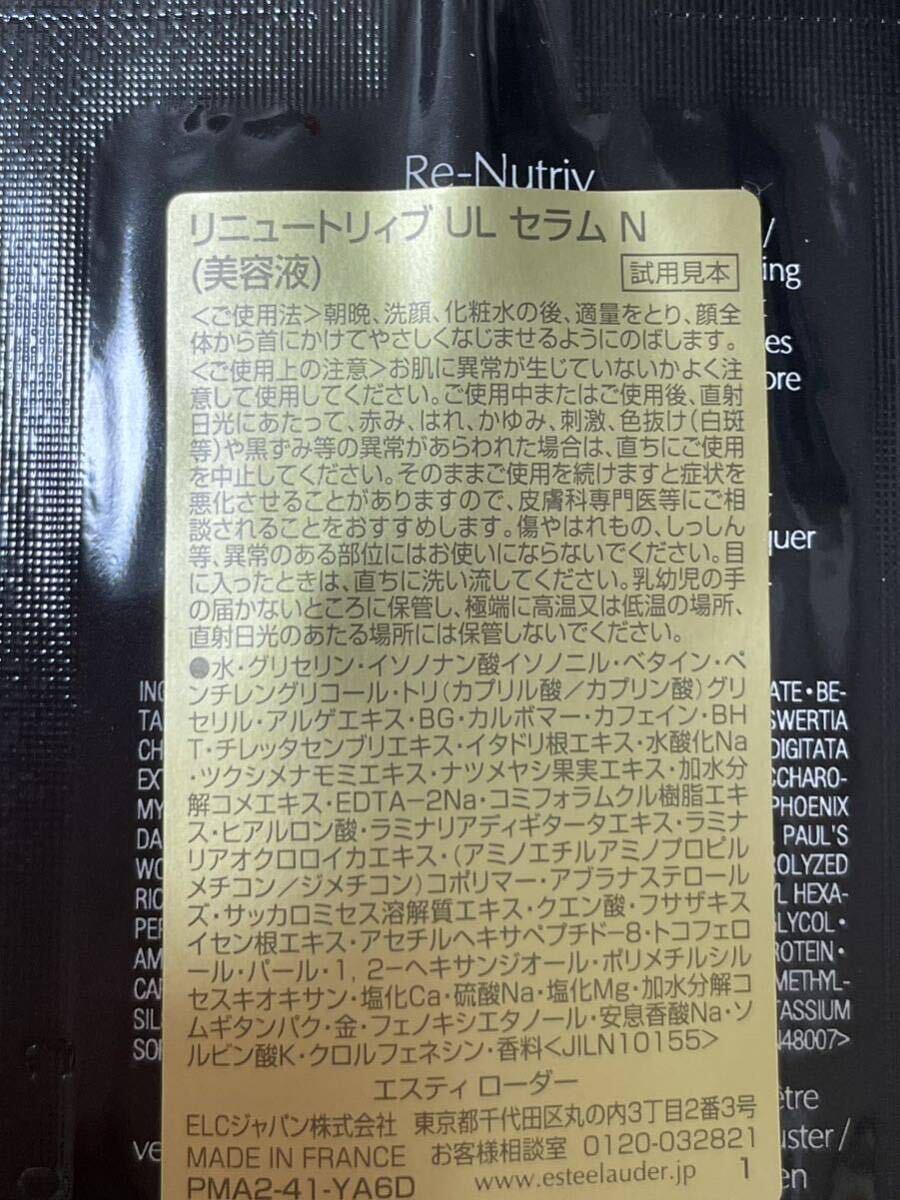 Re-Nutriv
リニュートリィブ UL セラム N
(美容液)
試用見本
<ご使用法>朝晩、洗顔、化粧水の後、適量をとり、顔全
体から首にかけてやさしくなじませるようにのばします。
<ご使用上の注意>お肌に異常が生じていないかよく注
意して使用してください。ご使用中またはご使用後、直射
日光にあたって、赤み、はれ、かゆみ、刺激、色抜け(白斑
等)や黒ずみ等の異常があらわれた場合は、直ちにご使用
を中止してください。そのままご使用を続けますと症状を
悪化させることがありますので、皮膚科専門医等にご相
談されることをおすすめします。傷やはれもの、しっしん
等、異常のある部位にはお使いにならないでください。目
に入ったときは、直ちに洗い流してください。乳幼児の手
の届かないところに保管し、極端に高温又は低温の場所、
直射日光のあたる場所には保管しないでください。
●水・グリセリン・イソノナン酸イソノニル・ベタイン・ペ
ンチレングリコール・トリ(カプリル酸/カプリン酸)グリ
セリル・アルゲエキス・BG・カルボマー・カフェイン・BH
T・チレッタセンブリエキス・イタドリ根エキス・水酸化Na
・ツクシメナモミエキス・ナツメヤシ果実エキス・加水分
解コメエキス・EDTA-2Na・コミフォラムクル樹脂エキ
ス・ヒアルロン酸・ラミナリアディギタータエキス・ラミナ
リアオクロロイカエキス・(アミノエチルアミノプロピル
メチコン/ジメチコン)コポリマー・アブラナステロール
ズ・サッカロミセス溶解質エキス・クエン酸・フサザキス
イセン根エキス・アセチルヘキサペプチド-8・トコフェロ
ール・パール・1,2-ヘキサンジオール・ポリメチルシル
セスキオキサン・塩化Ca・硫酸Na・塩化Mg・加水分解コ
ムギタンパク・金・フェノキシエタノール・安息香酸Na・ソ
ルビン酸K・クロルフェネシン・香料<JILN10155>
エスティ ローダー
ELCジャパン株式会社 東京都千代田区丸の内3丁目2番3号
MADE IN FRANCE お客様相談室 0120-032821
PMA2-41-YA6D www.esteelauder.jp 1